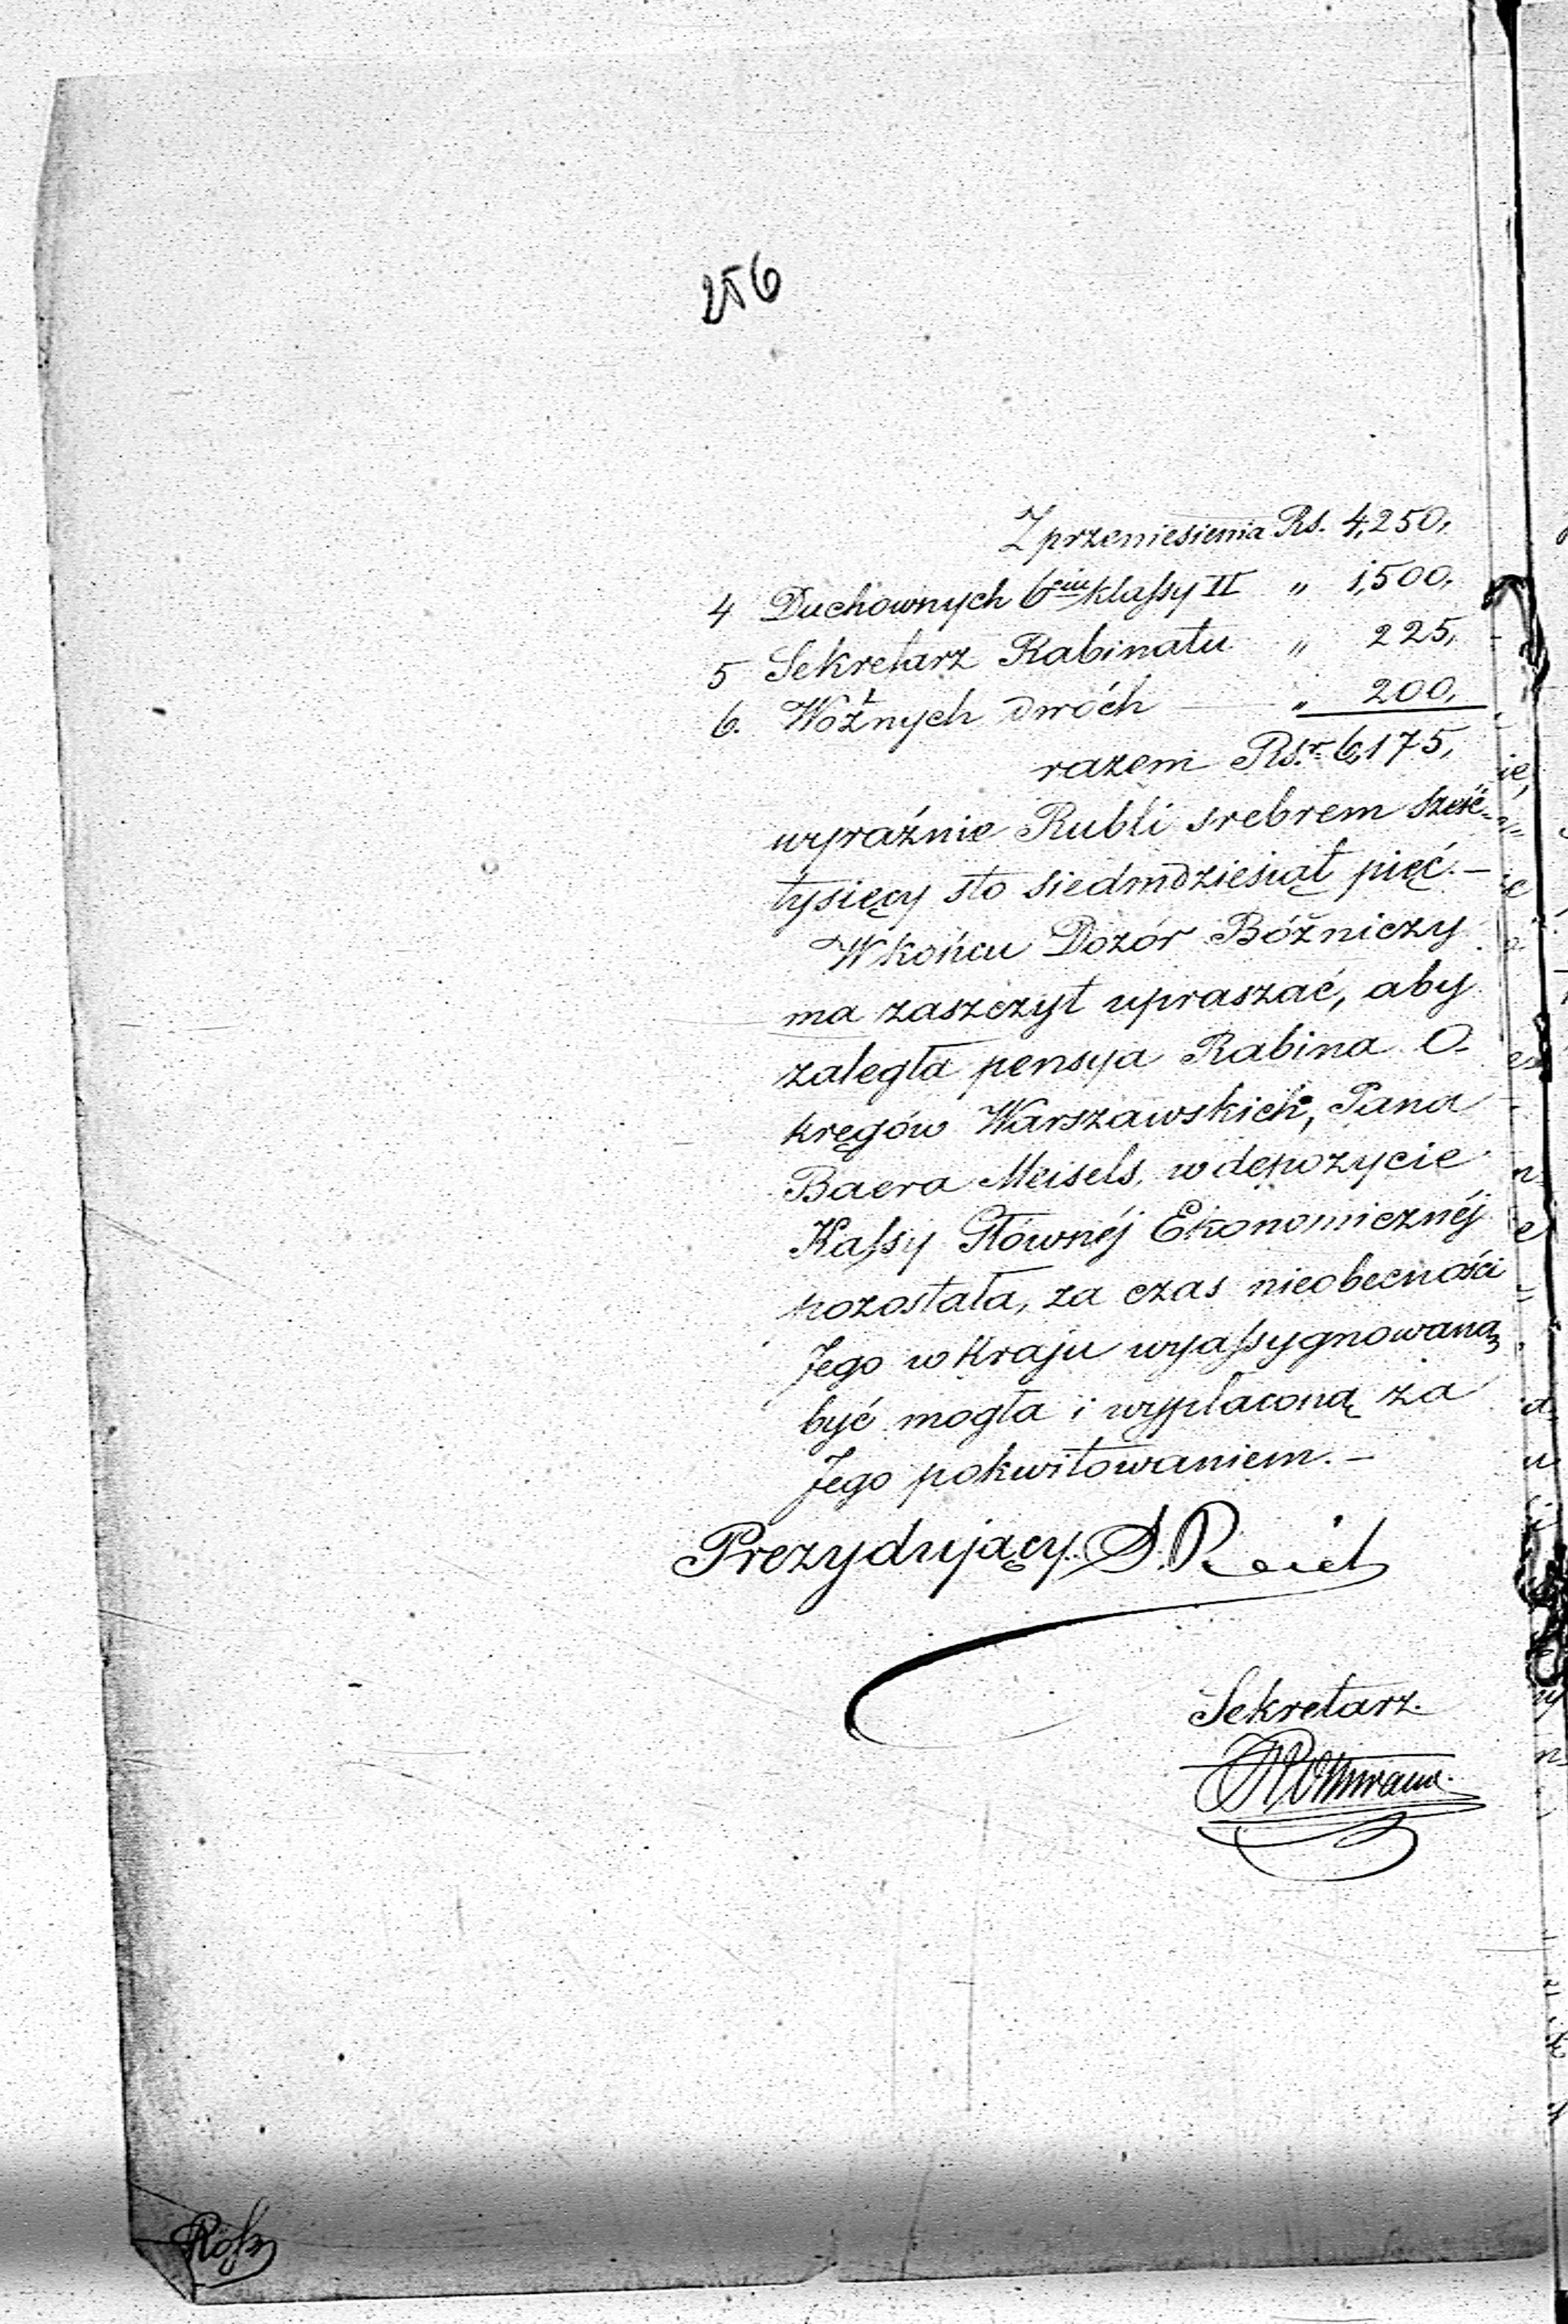 256
Z przeniesienia Rs. 4,250,
4 Duchownych 6ciu klassy II „ 1,500,
5 Sekretarz Rabinatu „ 225,
6. Woźnych dwóch — „ 200,
razem Rsr. 6,175,
wyraźnie Rubli srebrem sześć
tysięcy sto siedmdziesiąt pięć. —
W końcu Dozór Bóżniczy
ma zaszczyt upraszać, aby
zaległa pensya Rabina O-
kręgów Warszawskich, Pana
Baera Meisels, w depozycie
Kassy Głównéj Ekonomicznéj
pozostała, za czas nieobecności
Jego w Kraju wyassygnowaną
być mogła i wypłaconą za
Jego pokwitowaniem. —
Prezydujący S.
Sekretarz.